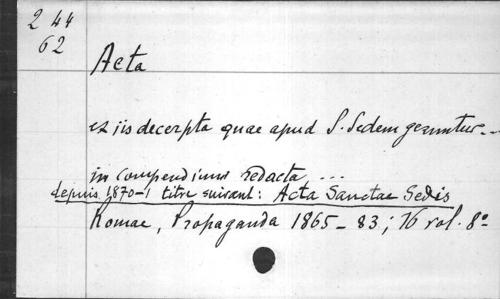 2 44
62
Acta
ex iis decerpta quae apud S. Sedem geruntur...
in compendium redacta, ...
depuis 1870-1 titre suivant: Acta Sanctae Sedis
Romae, Propaganda 1865-83; 16 vol. 8º